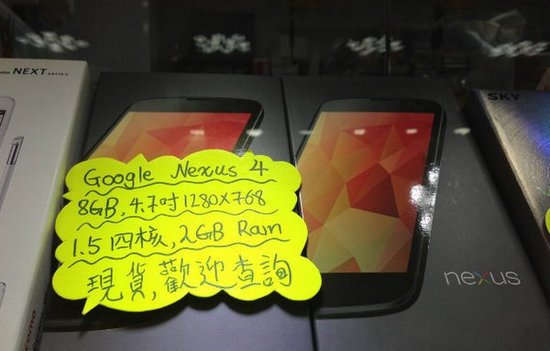 NEXT series
SKY
Google Nexus 4
8GB, 4.7吋 1280X768
1.5 四核, 2GB Ram
現貨, 歡迎查詢
nexus
ocomo